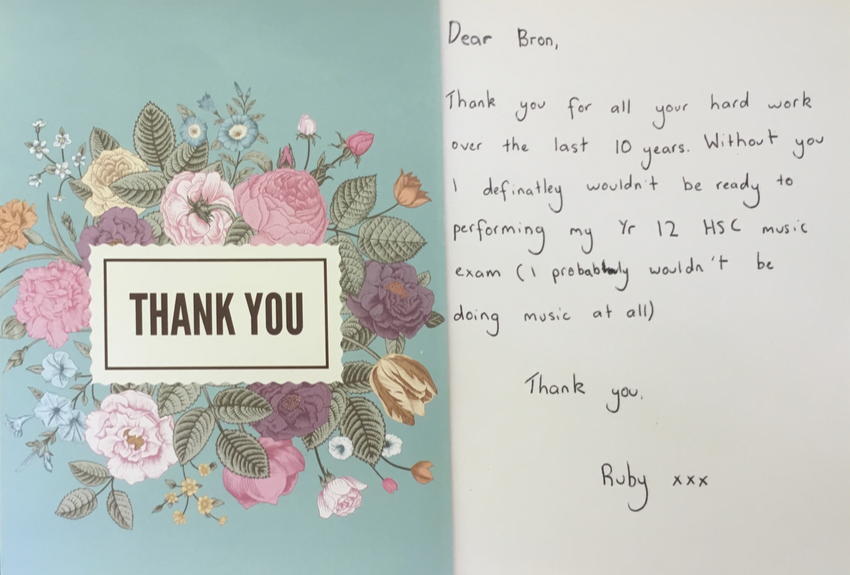 THANK YOU
Dear Bron,
Thank you for all your hard work
over the last 10 years. Without you
I definatley wouldn't be ready to
performing my Yr 12 HSC music
exam (I probably wouldn't be
doing music at all)
Thank you.
Ruby xxx